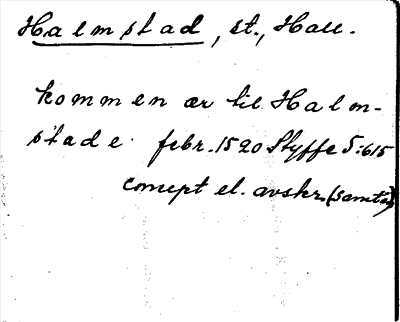 Halmstad, st., Hall.
kommen ær til Halm-
stade febr. 1520 Styffe 5:615
concept el. avskr. (samt.)